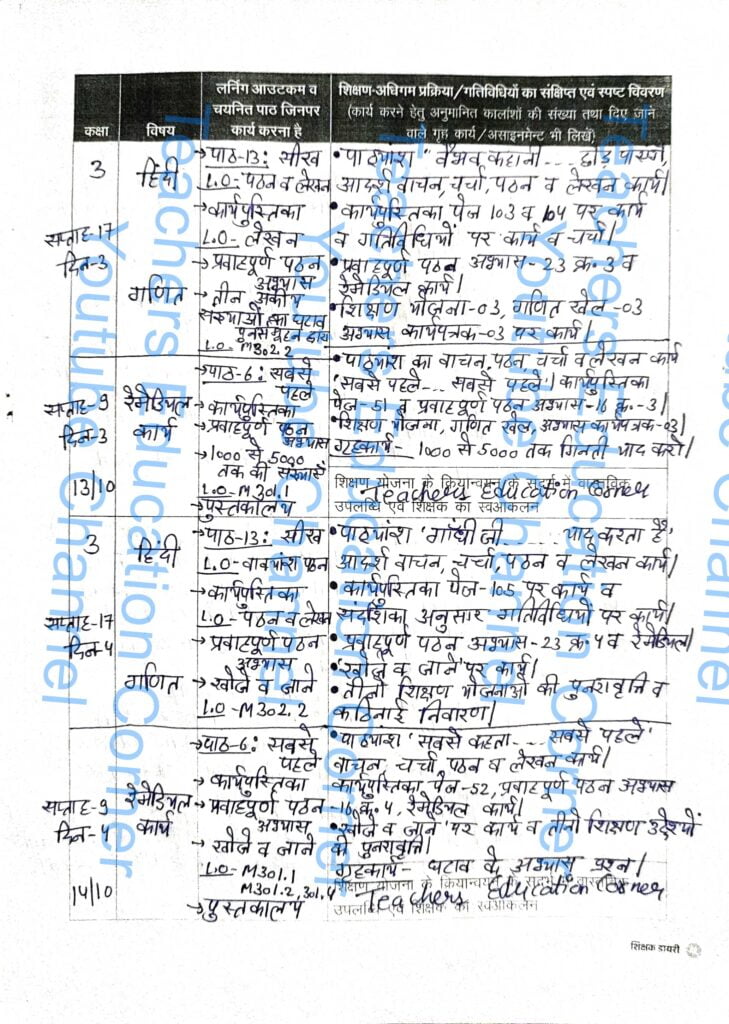 कक्षा
विषय
लर्निंग आउटकम व
चयनित पाठ जिनपर
कार्य करना है
शिक्षण-अधिगम प्रक्रिया/गतिविधियों का संक्षिप्त एवं स्पष्ट विवरण
(कार्य करने हेतु अनुमानित कालांशों की संख्या तथा दिए जाने
वाले गृह कार्य/असाइनमेंट भी लिखें)
3
सप्ताह-17
दिन-3
हिंदी
→पाठ-13: सीख
L.O- पठन व लेखन
→कार्यपुस्तिका
L.O- लेखन
→प्रवाहपूर्ण पठन
अभ्यास
गणित
→ तीन अंकीय
संख्याओं का घटाव
L.O- M302.2
• पाठ्यांश "वैभव कहानी....
आदर्श वाचन, चर्चा, पठन व लेखन कार्य।
• कार्यपुस्तिका पेज 103 व 104 पर कार्य
व गतिविधियों पर कार्य व चर्चा।
• प्रवाहपूर्ण पठन अभ्यास-23 क्र.3 व
रेमेडियल कार्य।
• शिक्षण योजना-03, गणित खेल-03
अभ्यास कार्यपत्रक-03 पर कार्य।
सप्ताह-9
दिन-3
13/10
रेमेडियल
कार्य
→पाठ-6: सबसे
पहले
→कार्यपुस्तिका
→प्रवाहपूर्ण पठन
अभ्यास
→1000 से 5000
तक की संख्याएँ
L.O-M301.1
→पुस्तकालय
• पाठ्यांश का वाचन, पठन, चर्चा व लेखन कार्य
'सबसे पहले... सबसे पहले'। कार्यपुस्तिका
पेज-51 व प्रवाहपूर्ण पठन अभ्यास-16 क्र.-3।
• शिक्षण योजना, गणित खेल, अभ्यास कार्यपत्रक-03।
गृहकार्य- 1000 से 5000 तक गिनती याद करो।
शिक्षण योजना के क्रियान्वयन के संदर्भ में वास्तविक
Teachers Education Corner
उपलब्धि एवं शिक्षक का स्वआंकलन
3
सप्ताह-17
दिन-4
हिंदी
→पाठ-13: सीख
L.O- वाक्यांश पठन
→कार्यपुस्तिका
L.O- पठन व लेखन
→प्रवाहपूर्ण पठन
अभ्यास
गणित
→खोजें व जाने
L.O-M302.2
• पाठ्यांश 'गाँधी जी...... याद करता है,
आदर्श वाचन, चर्चा, पठन व लेखन कार्य।
• कार्यपुस्तिका पेज-105 पर कार्य व
संदर्शिका अनुसार गतिविधियों पर कार्य।
• प्रवाहपूर्ण पठन अभ्यास-23 क्र.4 व रेमेडियल।
• 'खोजें व जाने' पर कार्य।
• तीनो शिक्षण योजनाओं की पुनरावृत्ति व
कठिनाई निवारण।
सप्ताह-9
दिन-4
14/10
रेमेडियल
कार्य
→पाठ-6: सबसे
पहले
→ कार्यपुस्तिका
→ प्रवाहपूर्ण पठन
अभ्यास
→ खोजें व जाने
L.O-M301.1
M301.2, 301.4
→पुस्तकालय
• पाठ्यांश 'सबसे कहता.... सबसे पहले'
वाचन, चर्चा, पठन व लेखन कार्य।
कार्यपुस्तिका पेज-52, प्रवाहपूर्ण पठन अभ्यास
-16 क्र.4, रेमेडियल कार्य।
• खोजें व जाने' पर कार्य व तीनो शिक्षण उद्देश्यों
की पुनरावृत्ति।
गृहकार्य- घटाव के अभ्यास प्रश्न।
शिक्षण योजना के क्रियान्वयन के संदर्भ में वास्तविक
Teachers Education Corner
उपलब्धि एवं शिक्षक का स्वआंकलन
शिक्षक डायरी
Teachers Education Corner
Youtube Channel
Teachers Education Corner
Youtube Channel
Teachers Education Corner
Youtube Channel